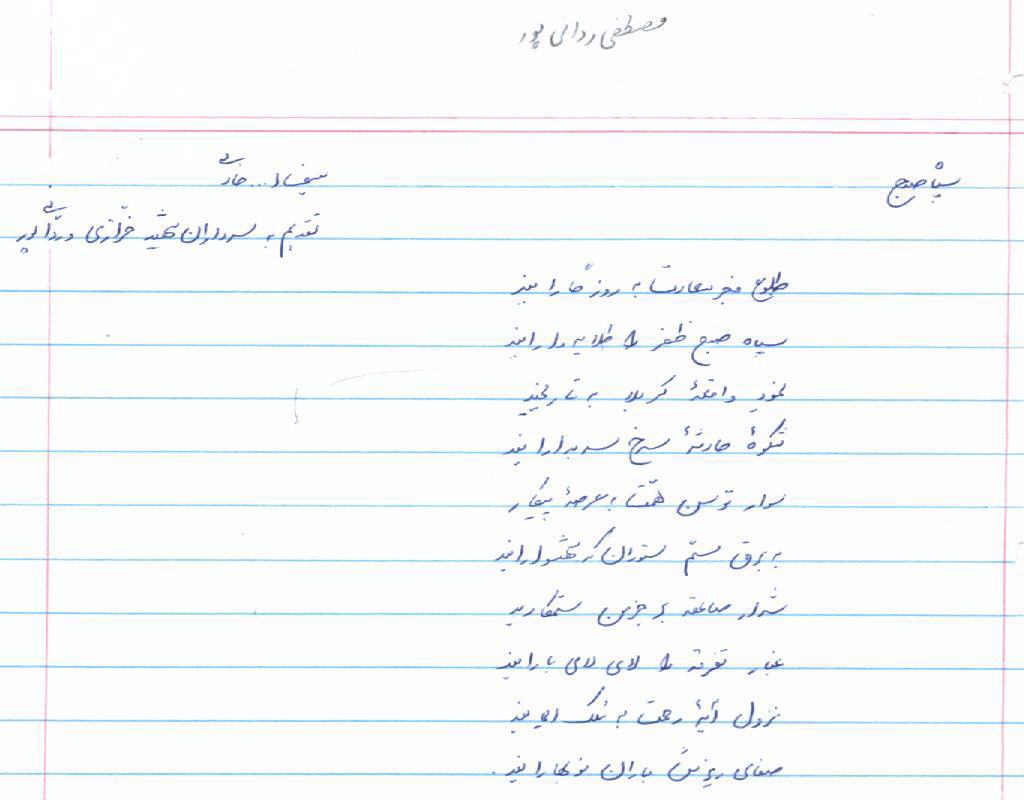 مصطفی ردانی پور
سپاه صبح
تقدیم به سرداران شهید خرازی و ردانی پور
طلوع فجر به روز
سپاه صبح ظفر را طلایه دارانید
نمود واقعهٔ کربلا به تاریخید
شکوه حادثهٔ سرخ سربدارانید
سوار توسن همت به عرصهٔ پیکار
به برق سم ستوران
شرار صاعقه بر خرمن ستمکارید
غبار تفرقه را لای لای بارانید
نزول آیهٔ رحمت به
صفای ریزش باران نوبهارانید.